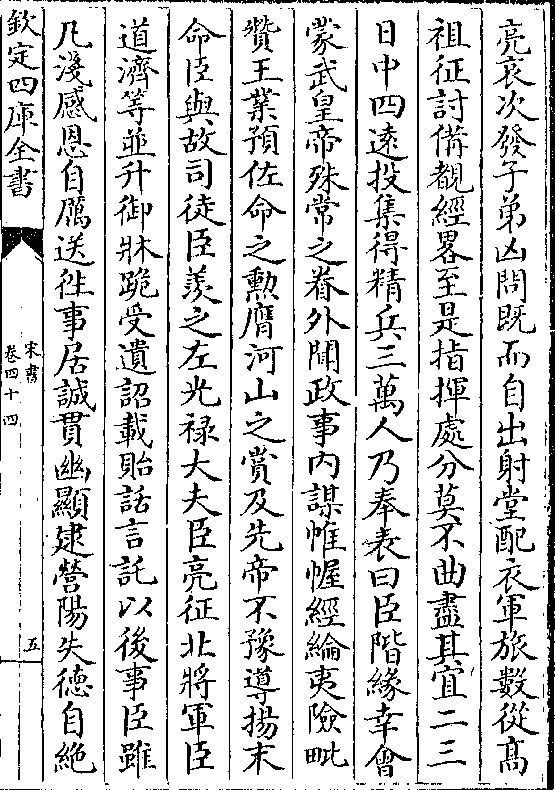 亮哀次發子弟凶問既而自出射堂配衣軍旅數從髙
祖征討備覩經畧至是指揮處分莫不曲盡其宜二三
日中四逺投集得精兵三萬人乃奉表曰臣階緣幸㑹
蒙武皇帝殊常之眷外聞政事内謀帷幄經綸夷險毗
贊王業預佐命之勲膺河山之賞及先帝不豫導揚末
命臣與故司徒臣羨之左光禄大夫臣亮征北將軍臣
道濟等並升御牀跪受遺詔載貽話言託以後事臣雖
凡淺感恩自厲送徃事居誠貫幽顯逮營陽失德自絶
欽定四庫全書
宋書
卷四十四
五